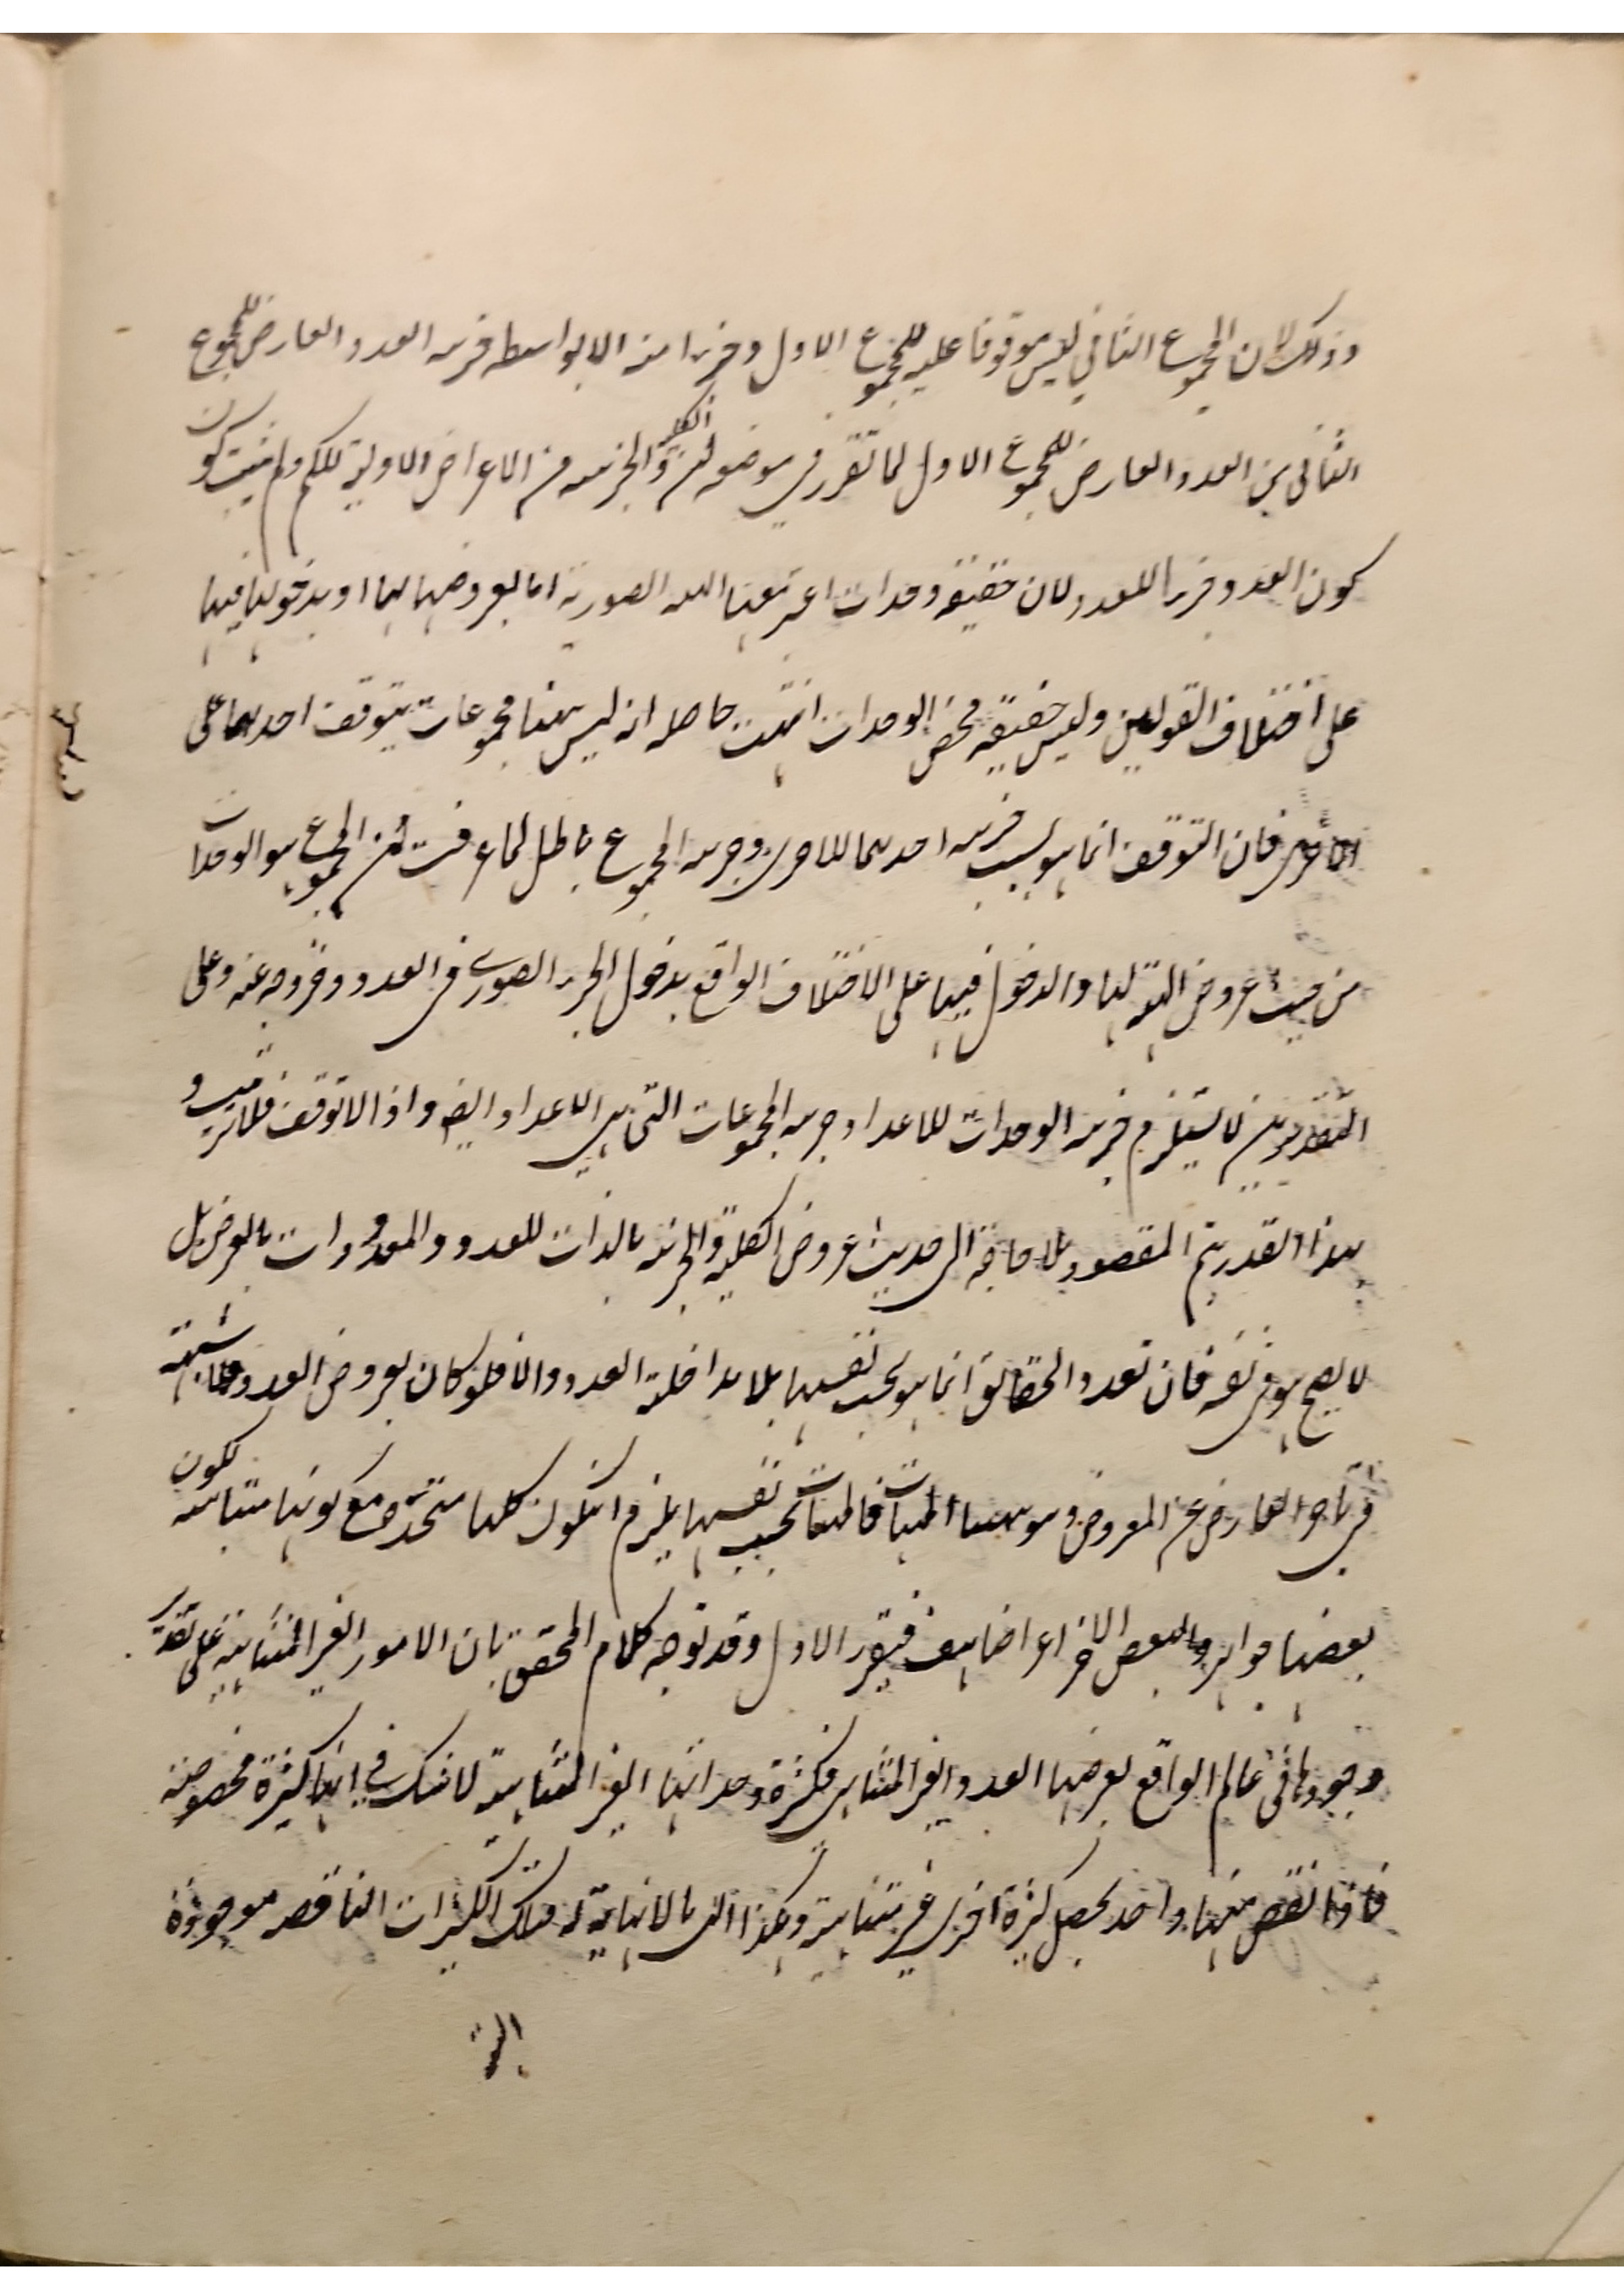 وذلك لان المجموع الثاني ليس موقوفا عليه للمجموع الاول وجزءا منه الا بواسطه جزئيه العدد العارض للمجموع
الثاني من العدد العارض للمجموع الاول لما تقرر في موضعه ان الكلية والجزئيه من الاعراض الاولية للكم ولم يثبت كون
كون العدد جزءا للعدد لان حقيقة وحدات اعتبر معها الهيئه الصورية اما بعروضها لها او بدخولها فيها
على اختلاف القولين وليس حقيقته محض الوحدات انتهت حاصله انه ليس ههنا مجموعات يتوقف احدهما على
الاخرى فان التوقف انما هو بسبب جزئيه احدهما للاخرى وجزئيه المجموع باطل لما عرفت ان المجموع هو الوحدات
من حيث عروض الهيئة لها والدخول فيها على الاختلاف الواقع بدخول الجزء الصورى في العدد وخروجه عنه وعلى
التقديرين لا يستلزم جزئيه الوحدات للاعداد جزئيه المجموعات التي هي الاعداد ايضا واذا لا توقف فلا ترتيب و
بهذا القدر يتم المقصود بلا حاجة الى حديث عروض الكلية والجزئية بالذات للعدد والمعدودات بالعرض بل
لا يصح هو في نفسه فان تعدد الحقائق انما هو بحسب نفسها بلا مداخلة العدد والا فلو كان بعروض العدد ولا شبهة
في تاخر العارض عن المعروض وهو ههنا المهيات فالمهيات بحسب نفسها يلزم ان تكون كلها متحدة مع كونها متباينه لكون
بعضها جواهر والبعض الاخر اعراضا هف فتقرر الاول وقد توجه كلام المحقق بان الامور الغير المتناهية على تقدير
وجودها في عالم الواقع يعرضها العدد الغير المتناهى فكثرة وحداتها الغير المتناهية لا شك في انها كثرة مخصوصة
فاذا نقص منها واحد يحصل كثرة اخرى غير متناهية وهكذا الى ما لا نهاية له فتلك الكثرات الناقصه موجودة